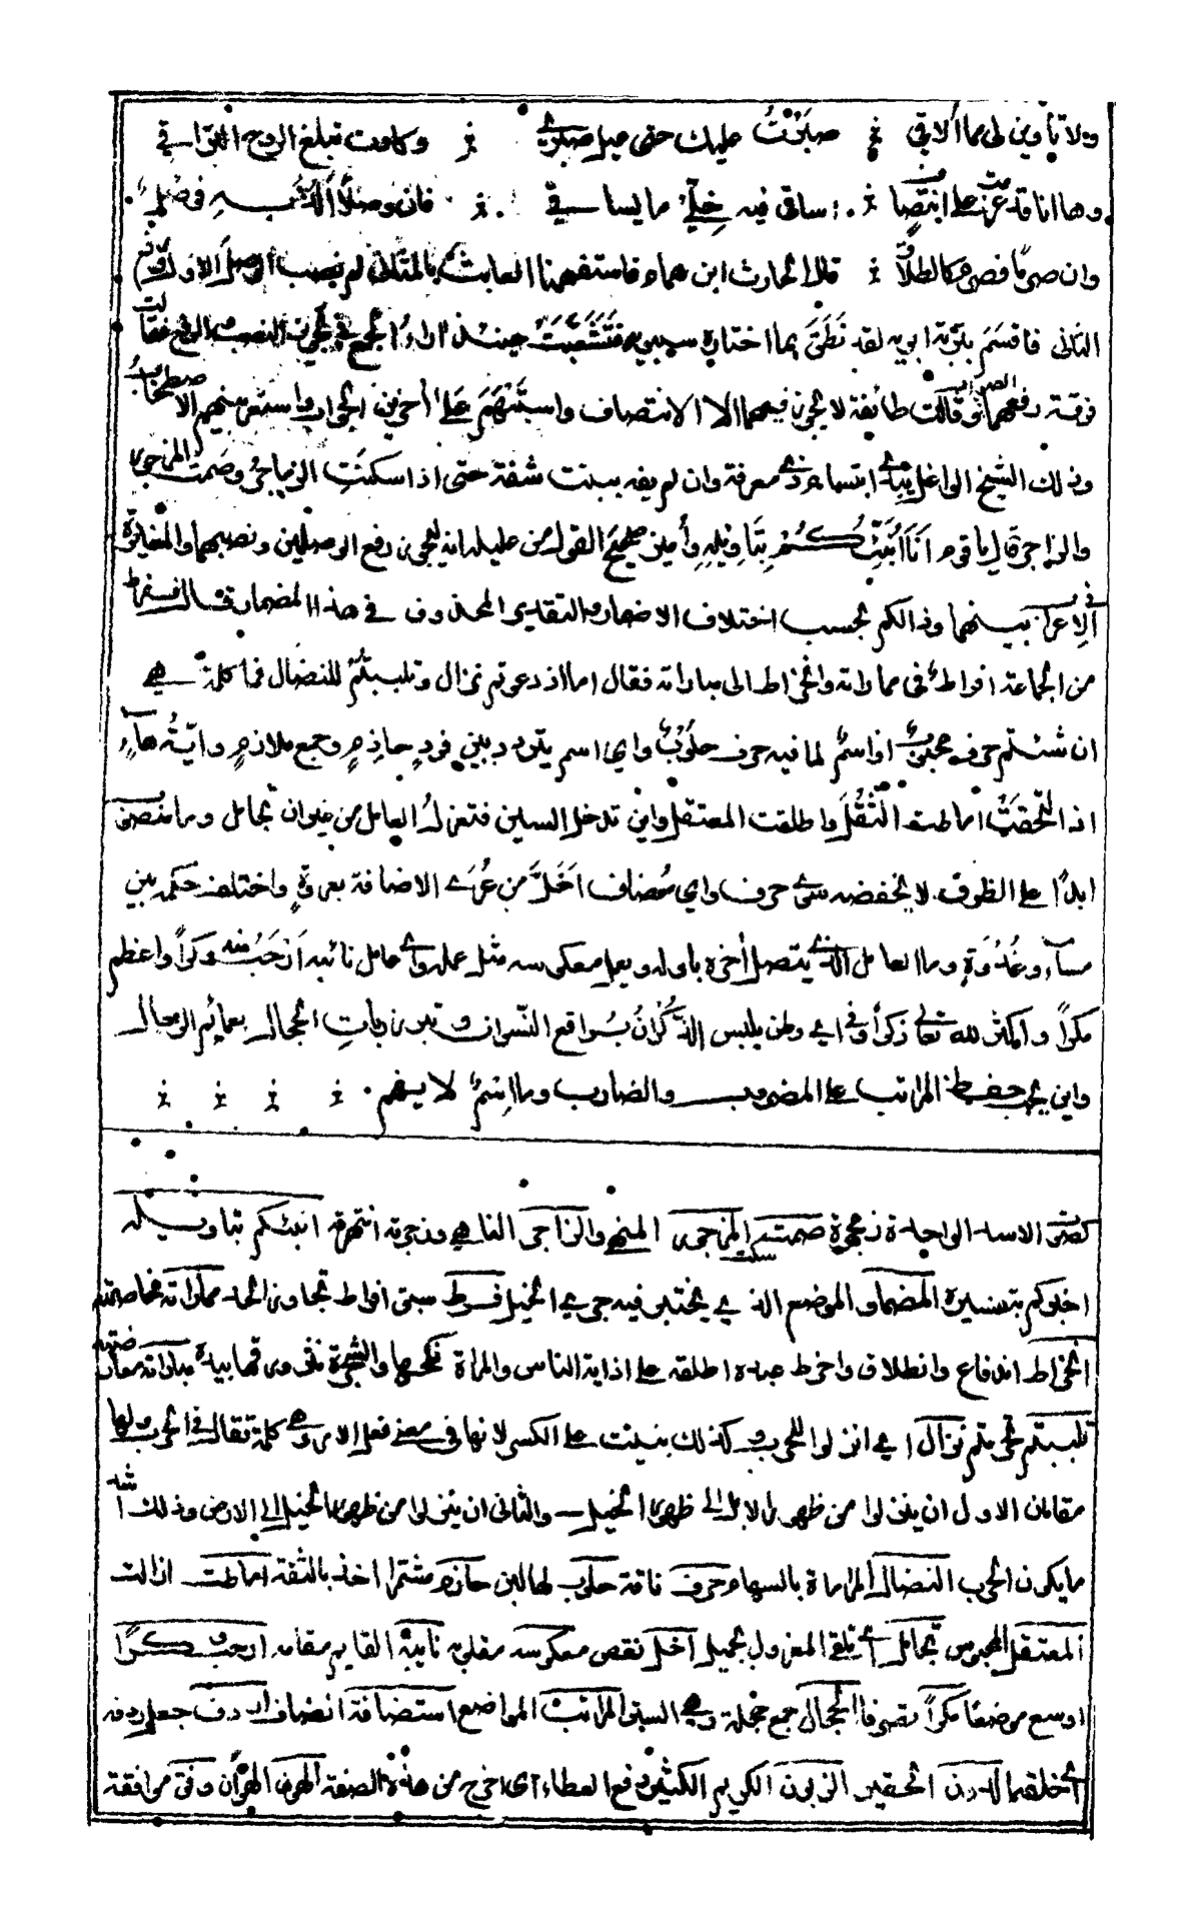 ولا تأوين لي مما ألاقي ∴ صبرت عليك حتى عيل صبري ∴ وكادت تبلغ الروح التراقي
وها انا قد عزمت على انتصاف ∴ اساقي فيه خلي ما يساقي ∴ فان وصلا الذ به فوصل
وان صرما فصرم كالطلاق ∴ قال الحارث ابن همام فاستفهمنا العابث بالمثاني لم نصب الوصل الاول ورفع
الثاني فاقسم بتربة ابويه لقد نطق بما اختاره سيبويه فتشعبت حينئذ اراء الجمع في تجويز النصب والرفع فقالت
فرقة رفعهما هو الصواب وقالت طائفة لا يجوز فيهما الا الانتصاب واستبهم على اخرين الجواب واستعر بينهم الاصطخاب
وذلك الشيخ الواغل يبدي ابتسام ذي معرفة وان لم يفه ببنت شفة حتى اذا سكنت الزماجر وصمت المزجور
والزاجر قال يا قوم انا انبئكم بتاويله وأميز صحيح القول من عليله انه ليجوز رفع الوصلين ونصبهما والمغايرة
في الاعراب بينهما وذالكم بحسب اختلاف الاضمار والتقدير المحذوف في هذا المضمار قال ففرط
من الجماعة افراط في مماراته وانخراط الى مباراته فقال اما اذ دعوتم نزال وتلببتم للنضال فما كلمة هي
ان شئتم حرف محبوب او اسم لما فيه حرف حلوب واي اسم يتردد بين فرد حازم وجمع ملازم واية هاء
اذا التحقت اماطت الثقل واطلقت المعتقل واين تدخل السين فتعزل العامل من غير ان تجامل وما منصوب
ابدا على الظرف لا يخفضه سوى حرف واي مضاف اخل من عرى الاضافة بعروة واختلف حكمه بين
مساء وغدوة وما العامل الذي يتصل اخره باوله ويعمل معكوسه مثل عمله واي عامل نائبه ارحب منه وكرا واعظم
مكرا واكثر لله تعالى ذكرا وفي اي وطن يلبس الذكران براقع النسوان وتبرز ربات الحجال بعمائم الرجال
واين يجب حفظ المراتب على المضروب والضارب وما اسم لا يفهم ∴ ∴ ∴ ∴
الواحدة زمجرة صمت سكت المزجور المنهي والزاجر الناهي وزجرته انتهرته انبئكم بتاويله
اخبركم بتفسيره المضمار الموضع الذي يختبر فيه جري الخيل فرط سبق افراط تجاوز الحد مماراته مخاصمته
انخراط اندفاع وانطلاق واخرط عبده اطلقه على اذاية الناس والمراة نكحها والشجرة مباراته معارضته
تلببتم تحزمتم نزال اي انزلوا للحرب وكذلك بنيت على الكسر لانها في معنى فعل الامر وهي كلمة تقال في الحرب ولها
مقامان الاول ان ينزلوا من ظهور الابل الى ظهور الخيل والثاني ان ينزلوا من ظهور الخيل الى الارض وذلك اشد
ما يكون الحرب النضال المراماة بالسهام حرف ناقة حلوب لها لبن حازم مشتمرا اخذ بالثقة اماطت ازالت
المعتقل المحبوس تجامل اي تلقى المعزول بجميل اخل نقص معكوسه مقلوبه نائبه القايم مقامه ارحب وكرا
اوسع موضعا مكرا تصرفا الحجال جمع حجلة وهي الستر المراتب المواضع استضافة انضاف اردف جعل ردفه
خلفه الدون الحقير الزبون الكريم الكثير دفع العطاء اي اخرج من هذه الصفة الهون الهوان وفق موافقة